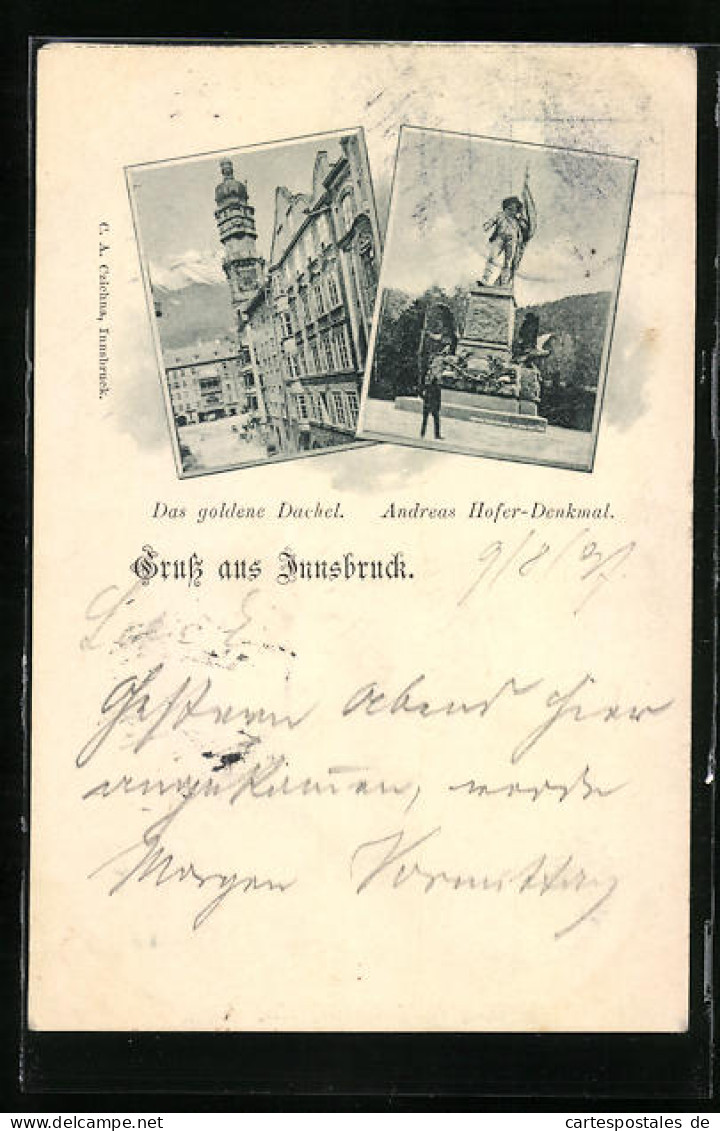 C. A. Czichna, Innsbruck.
Das goldene Dachel. Andreas Hofer-Denkmal.
Gruß aus Innsbruck.
9/8/97.
Gestern Abend hier
angekom̄en, werde
Morgen Vormittag
cartespostales.de